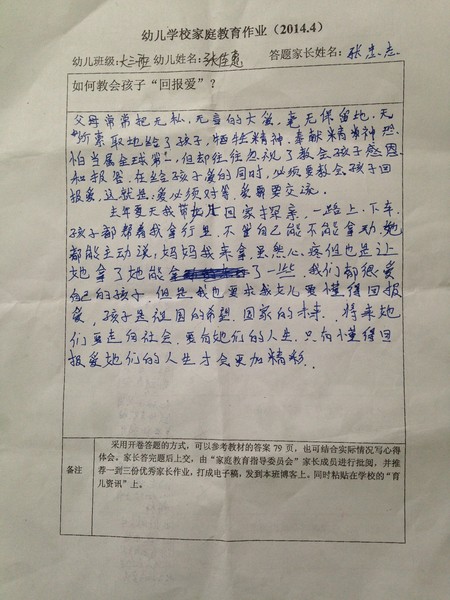 幼儿学校家庭教育作业（2014.4）
幼儿班级:大三班 幼儿姓名:张佳惠 答题家长姓名:张志志
如何教会孩子“回报爱”？
父母常常把无私、无音的大爱，毫无保留地、无
所索取地给了孩子，牺牲精神、奉献精神恐
怕当属全球第一，但却往往忽视了教会孩子感恩
和报答。在给孩子爱的同时，必须要教会孩子回
报爱，这就是：爱必须对等，爱需要交流。
去年夏天我带女儿回家探亲，一路上、下车，
孩子都帮着我拿行李，不管自己能不能拿动，她
都能主动说，妈妈我来拿，虽然心疼但也是让
她拿了她能拿了一些，我们都很爱
自己的孩子，但是我也要求我女儿要懂得回报
爱，孩子是祖国的希望，国家的未来，将来她
们要走向社会，要有她们的人生，只有懂得回
报爱她们的人生才会更加精彩。
备注
采用开卷答题的方式，可以参考教材的答案 79 页，也可结合实际情况写心得
体会。家长答完题后上交，由“家庭教育指导委员会”家长成员进行批阅，并推
荐一到三份优秀家长作业，打成电子稿，发到本班博客上。同时粘贴在学校的“育
儿资讯”上。